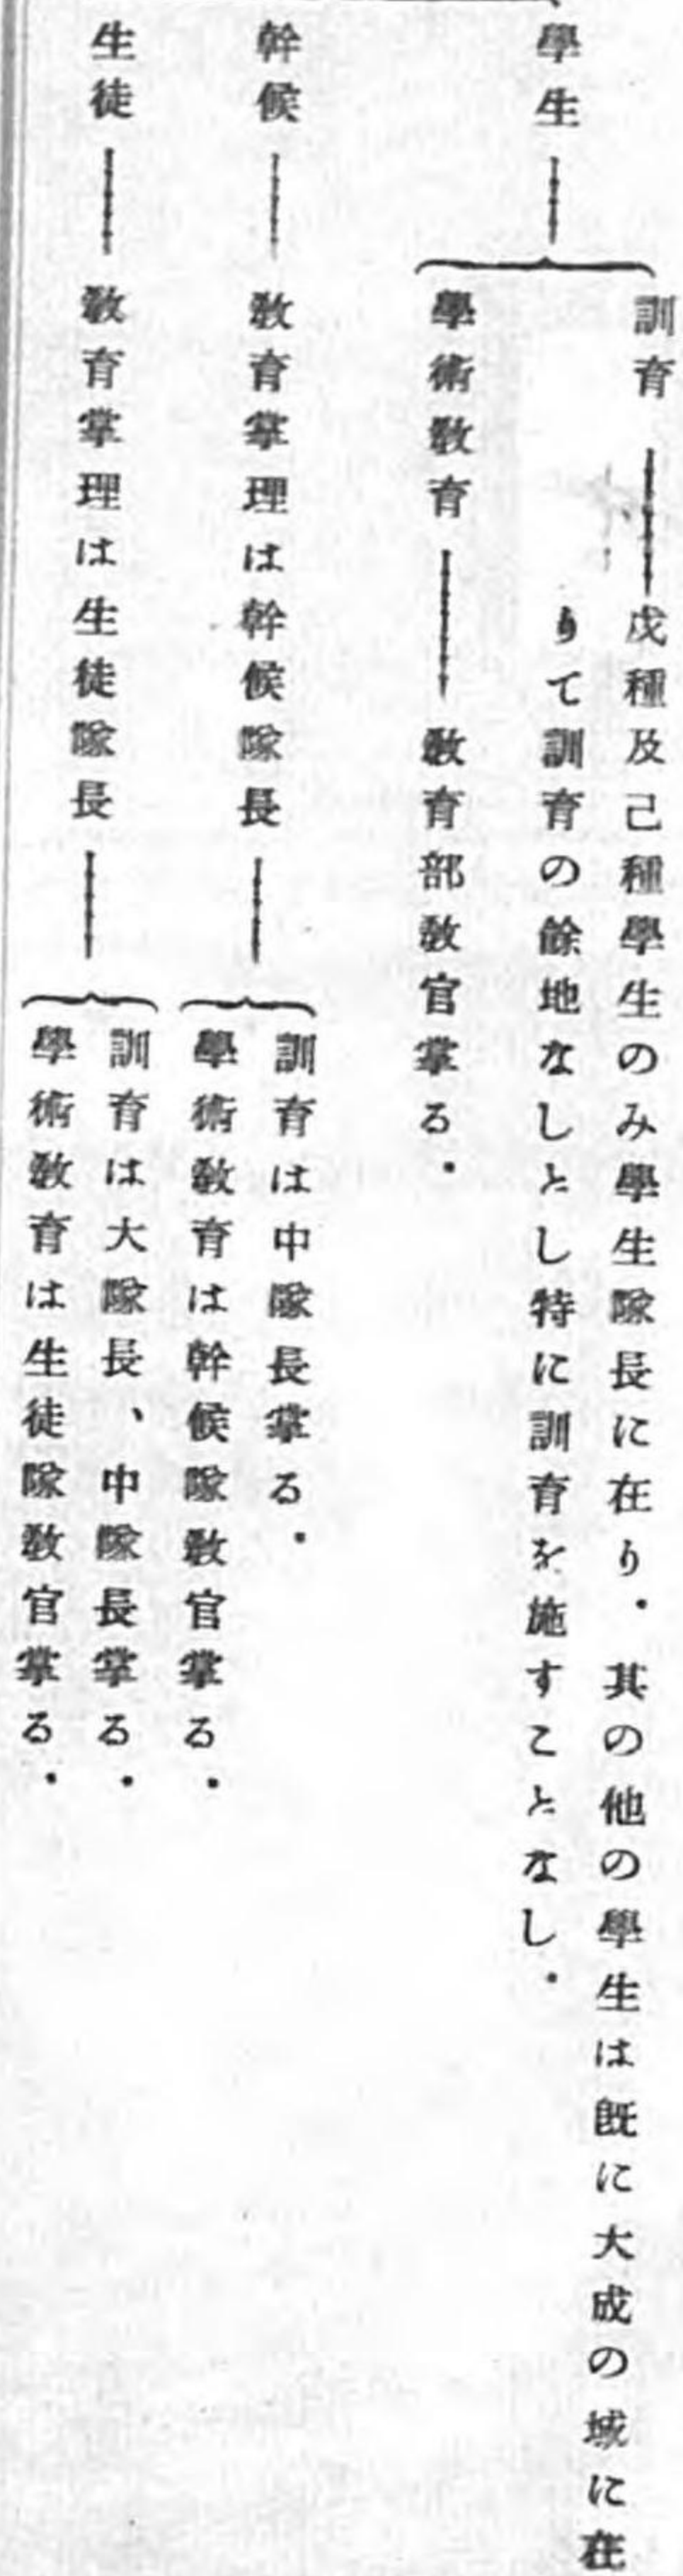 學生
訓育
戊種及己種學生のみ學生隊長に在り．其の他の學生は既に大成の域に在
りて訓育の餘地なしとし特に訓育を施すことなし．
學術敎育
敎育部敎官掌る．
幹候
敎育掌理は幹候隊長
訓育は中隊長掌る．
學術敎育は幹候隊敎官掌る．
生徒
敎育掌理は生徒隊長
訓育は大隊長、中隊長掌る．
學術敎育は生徒隊敎官掌る．